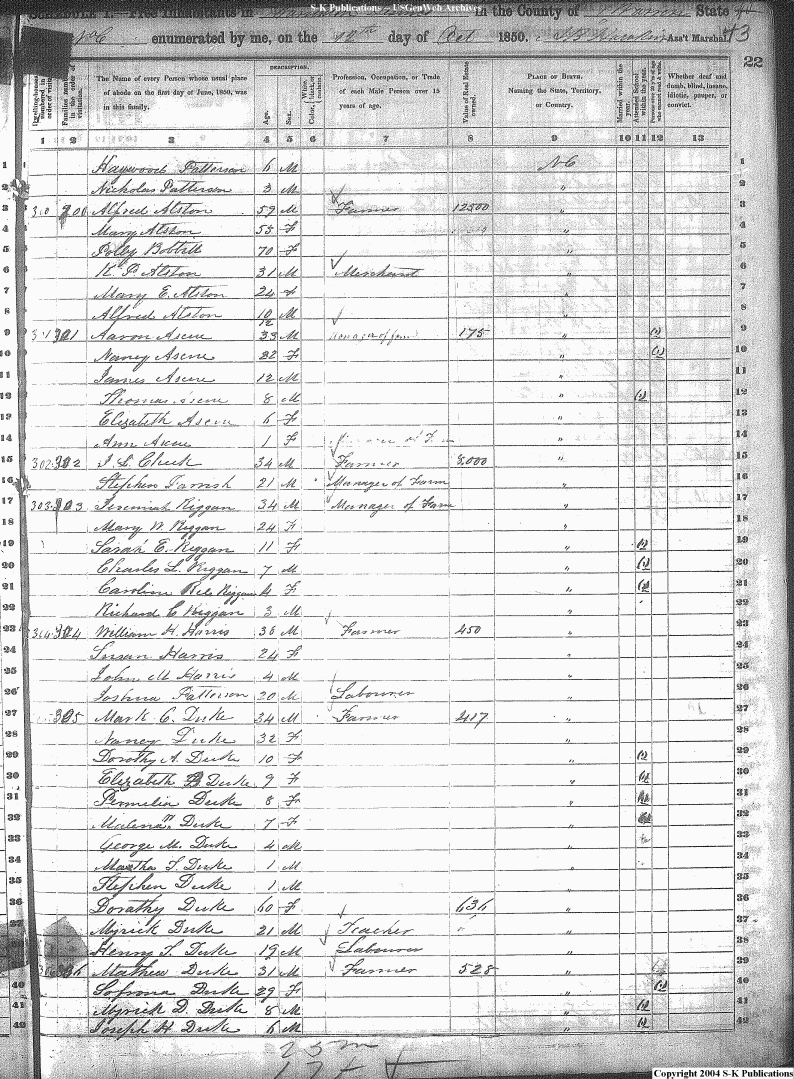 S-K Publications - USGenWeb Archives
SCHEDULE I. Free Inhabitants in in the County of Warren State
of NC enumerated by me, on the 12th day of Oct 1850. Ass't Marshal. 43
22
Dwelling-houses numbered in the order of visitation.
Families numbered in the order of visitation.
The Name of every Person whose usual place of abode on the first day of June, 1850, was in this family.
DESCRIPTION.
Age.
Sex.
Color, White, black, or mulatto.
Profession, Occupation, or Trade of each Male Person over 15 years of age.
Value of Real Estate owned.
PLACE OF BIRTH. Naming the State, Territory, or Country.
Married within the year.
Attended School within the year.
Persons over 20 y'rs of age who cannot read & write.
Whether deaf and dumb, blind, insane, idiotic, pauper, or convict.
1 2 3 4 5 6 7 8 9 10 11 12 13
1 Haywood Patterson 6 M NC 1
2 Nicholas Patterson 3 M " 2
3 300 Alfred Alston 59 M Farmer 12500 " 3
4 Mary Alston 55 F " 4
5 Polly 70 F " 5
6 K. P. Alston 31 M Merchant " 6
7 Mary E. Alston 24 F " 7
8 Alfred Alston 10 M " 8
9 301 Aaron Ascue 33 M Manager of farm 175 " (1) 9
10 Nancy Ascue 32 F " (1) 10
11 James Ascue 12 M " 11
12 Thomas Ascue 8 M " (1) 12
13 Elizabeth Ascue 6 F " 13
14 Ann Ascue 1 F " 14
15 302 302 J. L. Cheek 34 M Farmer 8,000 " 15
16 Stephen Parrish 21 M Manager of Farm " 16
17 303 303 Jeremiah Riggan 34 M Manager of Farm " 17
18 Mary W. Riggan 24 F " 18
19 Sarah E. Riggan 11 F " (1) 19
20 Charles L. Riggan 7 M " (1) 20
21 Caroline Riggan 4 F " (1) 21
22 Richard C Riggan 3 M " 22
23 304 304 William H. Harris 30 M Farmer 450 " 23
24 Susan Harris 24 F " 24
25 John M Harris 4 M " 25
26 Joshua Patterson 20 M Labourer " 26
27 305 Mark C. Duke 34 M Farmer 417 " 27
28 Nancy Duke 32 F " 28
29 Dorothy A. Duke 10 F " (1) 29
30 Elizabeth B Duke 9 F " (1) 30
31 Permelia Duke 8 F " 31
32 Malena Duke 7 F " 32
33 George M. Duke 4 M " 33
34 Martha T. Duke 1 M " 34
35 Stephen Duke 1 M " 35
36 Dorathy Duke 60 F 636 " 36
37 Myrick Duke 21 M Teacher " 37
38 Henry T. Duke 19 M Labourer " 38
39 306 Mathew Duke 31 M Farmer 528 " 39
40 Sofrona Duke 29 F " (1) 40
41 Myrick D. Duke 8 M " (1) 41
42 Joseph H Duke 6 M " (1) 42
25 m
17 f
Copyright 2004 S-K Publications